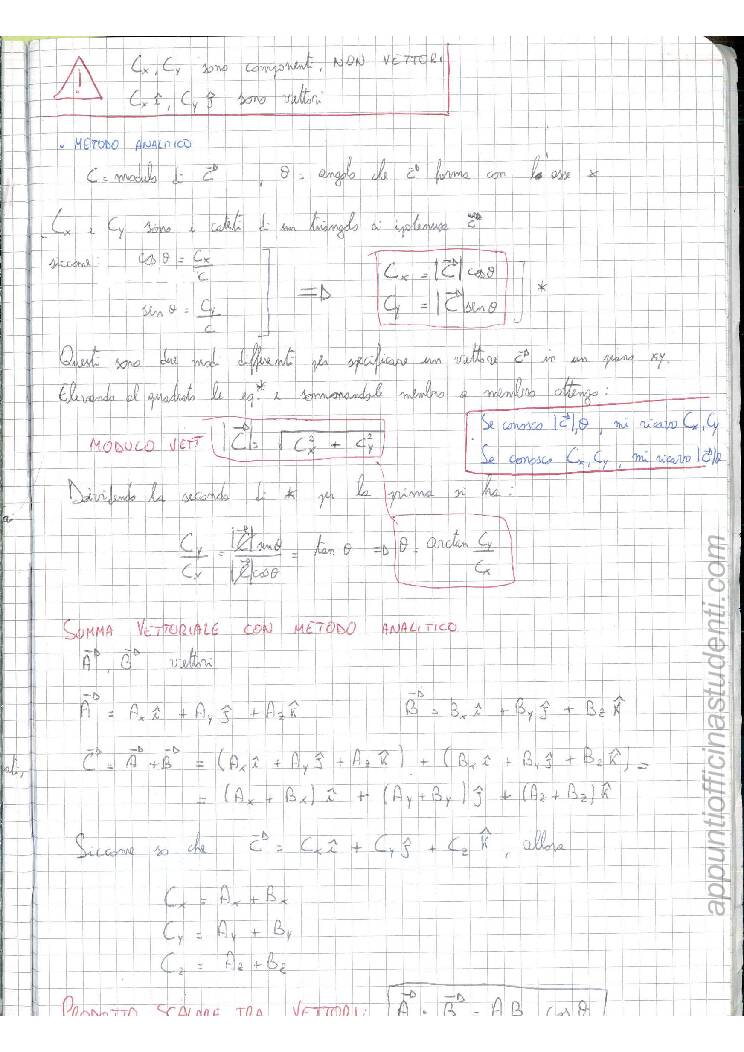 ! Cx, Cy sono componenti, NON VETTORI
Cx î, Cy ĵ sono vettori
• METODO ANALITICO
C = modulo di C⃗ , θ = angolo che C⃗ forma con l'asse x
Cx e Cy sono i cateti di un triangolo di ipotenusa C⃗
siccome: cos θ = Cx/C
sin θ = Cy/C
⇒ Cx = |C⃗| cosθ
Cy = |C⃗| senθ *
Questi sono due modi differenti per specificare un vettore C⃗ in un piano xy.
Elevando al quadrato le eq.* e sommandole membro a membro ottengo:
MODULO VETT |C⃗| = √(Cx² + Cy²)
Se conosco |C⃗|,θ , mi ricavo Cx, Cy
Se conosco Cx, Cy , mi ricavo |C⃗|,θ
Dividendo la seconda di * per la prima si ha:
Cy/Cx = |C⃗| sinθ / |C⃗| cosθ = tan θ ⇒ θ = arctan Cy/Cx
SOMMA VETTORIALE CON METODO ANALITICO
A⃗, B⃗ vettori
A⃗ = Ax î + Ay ĵ + Az k̂ B⃗ = Bx î + By ĵ + Bz k̂
C⃗ = A⃗ + B⃗ = (Ax î + Ay ĵ + Az k̂) + (Bx î + By ĵ + Bz k̂) =
= (Ax + Bx) î + (Ay + By) ĵ + (Az + Bz) k̂
Siccome so che C⃗ = Cx î + Cy ĵ + Cz k̂, allora
Cx = Ax + Bx
Cy = Ay + By
Cz = Az + Bz
PRODOTTO SCALARE TRA VETTORI: A⃗ · B⃗ = AB cos θ
appuntiofficinastudenti.com